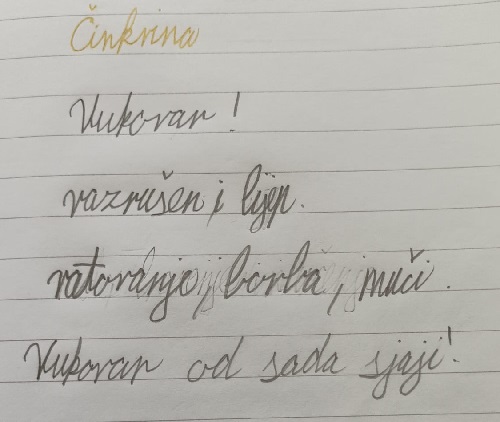 Činkvina
Vukovar!
razrušen i lijep.
ratovanje, borba, muči.
Vukovar od sada sjaji!